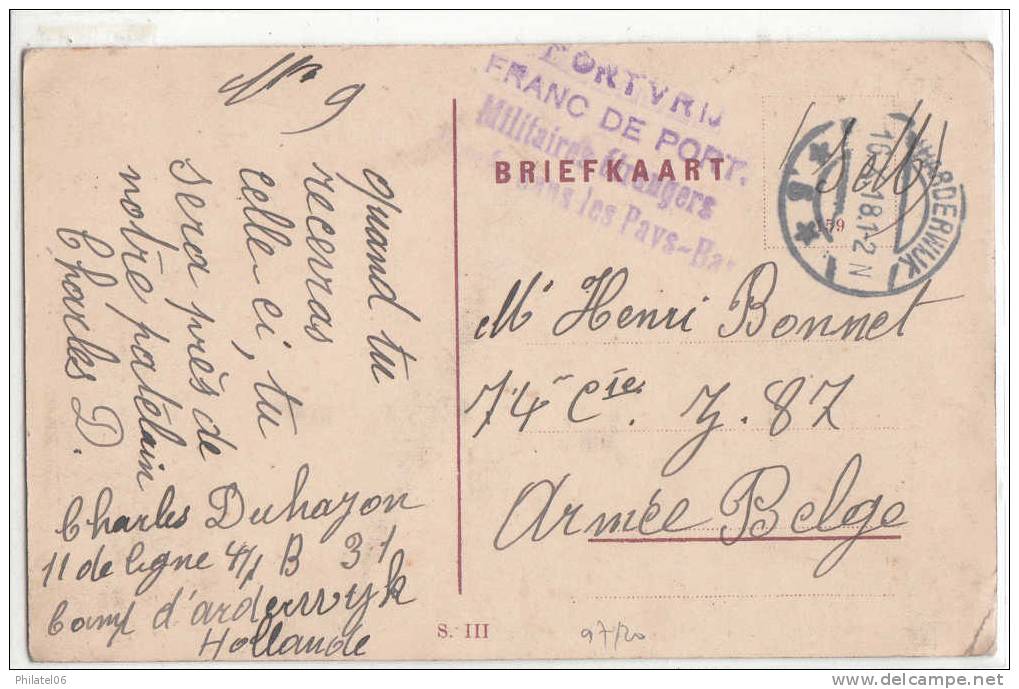 N° 9
quand tu
recevras
celle-ci, tu
sera près de
notre patelain
Charles D.
Charles Duhayon
11 de ligne 4/1 B 31
Camp d'arderwyk
Hollande
PORTVRIJ
FRANC DE PORT.
Militaires étrangers
dans les Pays-Bas
BRIEFKAART
159
HARDERWIJK
18.1-2 N
Mr Henri Bonnet
74 Cie. Z. 87
Armée Belge
S. III
97/20
Philatel06
www.delcampe.net